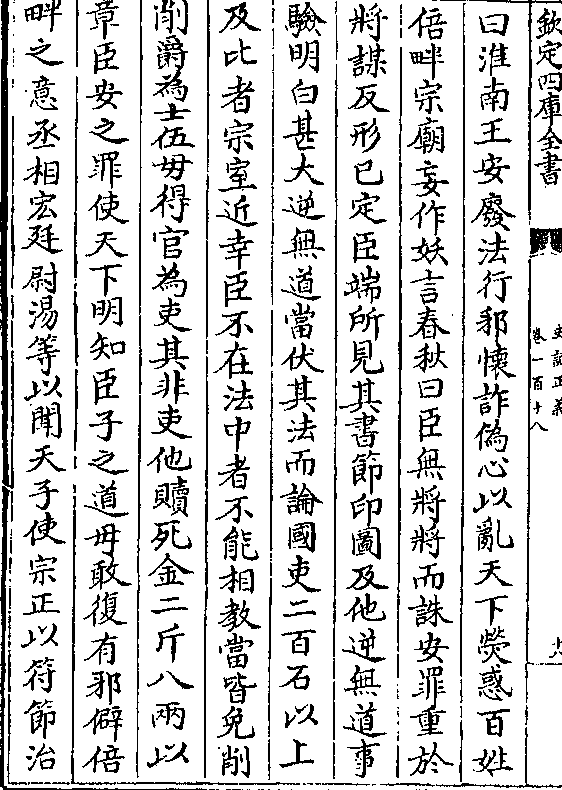 欽定四庫全書
史記正義
卷一百十八
曰淮南王安廢法行邪懷詐偽心以亂天下熒惑百姓
倍畔宗廟妄作妖言春秋曰臣無將將而誅安罪重於
將謀反形已定臣端所見其書節印圖及他逆無道事
驗明白甚大逆無道當伏其法而論國吏二百石以上
及比者宗室近幸臣不在法中者不能相教當皆免削
削爵為士伍毋得官為吏其非吏他贖死金二斤八兩以
章臣安之罪使天下明知臣子之道毋敢復有邪僻倍
畔之意丞相宏廷尉湯等以聞天子使宗正以符節治